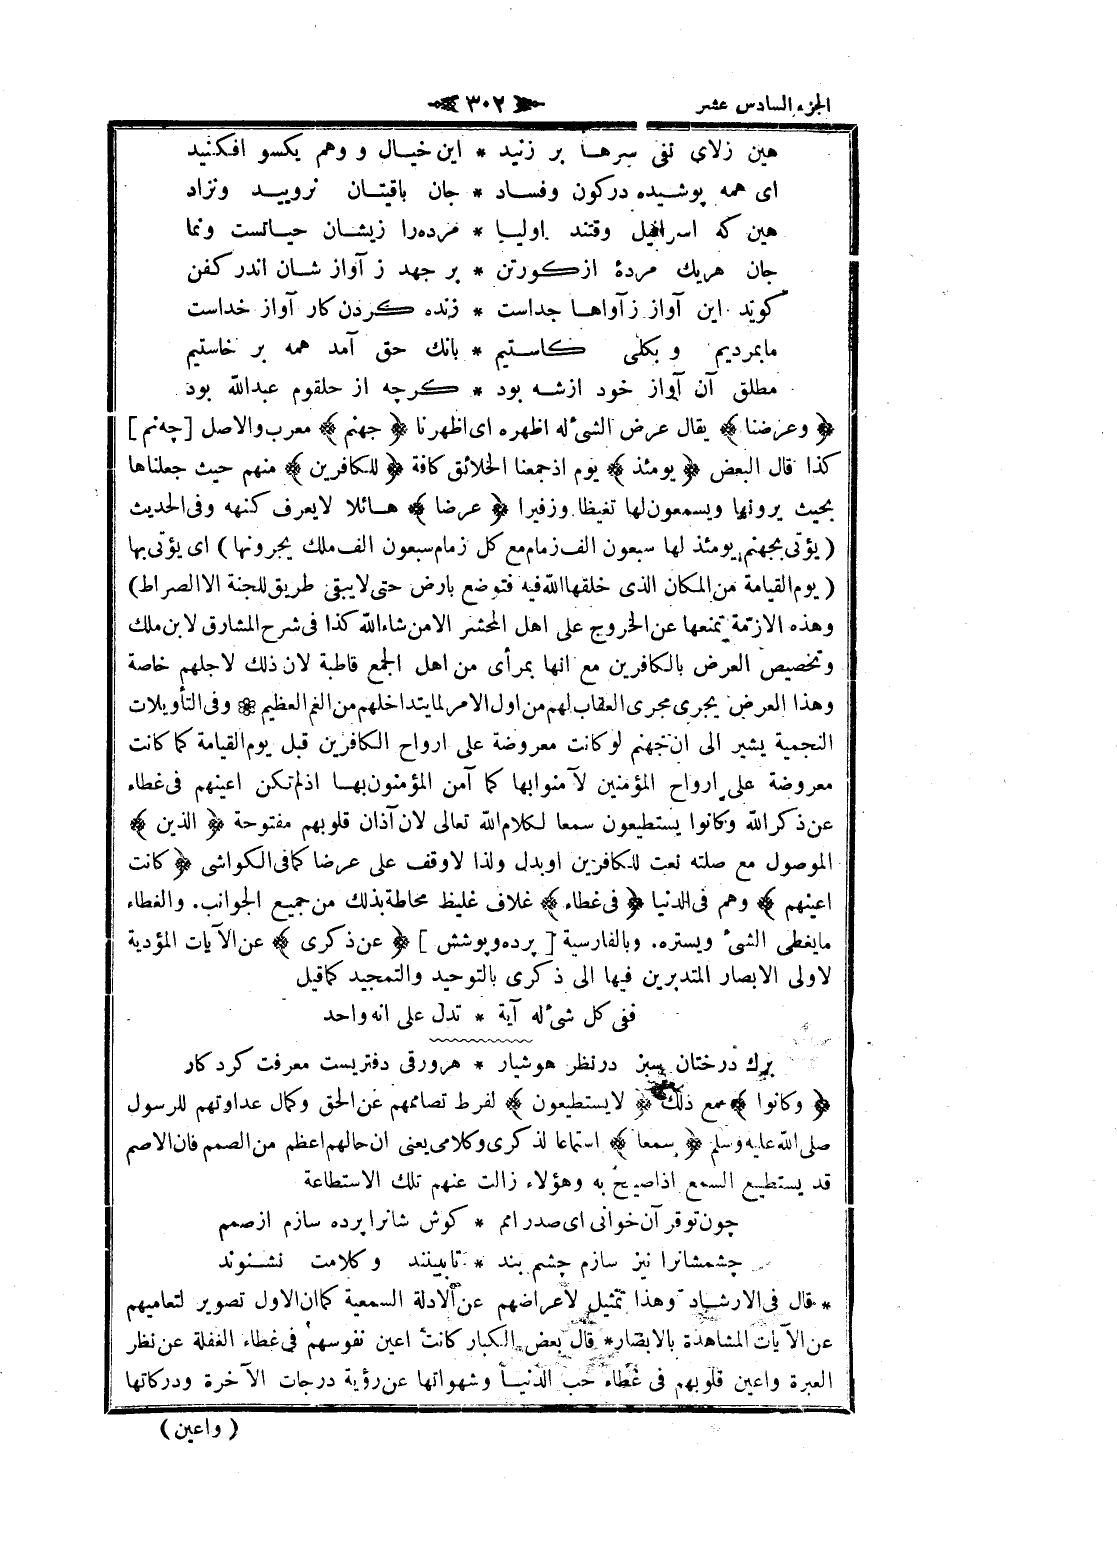 الجزء السادس عشر ٣٠٢
هين زلاى نفى سرهـا بر زنيد * اين خيـال و وهم يكسو افكنيد
اى همه پوشيده دركون وفساد * جان باقيتـان نرويـد ونزاد
هين كه اسرافيل وقتند اوليـا * مرده را زيشـان حياتست ونما
جان هريك مردهٔ ازكورتن * بر جهد ز آواز شـان اندر كفن
كويد اين آواز زآواها جداست * زنده كردن كار آواز خداست
ما بمرديم و بكلى كاستيم * بانك حق آمد همه بر خاستيم
مطلق آن آواز خود ازشه بود * كرچه از حلقوم عبدالله بود
﴿ وعرضنا ﴾ يقال عرض الشئ له اظهره اى اظهرنا ﴿ جهنم ﴾ معرب والاصل [چه نم]
كذا قال البعض ﴿ يومئذ ﴾ يوم اذجمعنا الخلائق كافة ﴿ للكافرين ﴾ منهم حيث جعلناها
بحيث يرونها ويسمعون لها تغيظا وزفيرا ﴿ عرضا ﴾ هـائلا لايعرف كنهه وفى الحديث
( يؤتى بجهنم يومئذ لها سبعون الف زمام مع كل زمام سبعون الف ملك يجرونها ) اى يؤتى بها
( يوم القيامة من المكان الذى خلقها الله فيه فتوضع بارض حتى لايبقى طريق للجنة الا الصراط)
وهذه الازمّة تمنعها عن الخروج على اهل المحشر الا من شاء الله كذا فى شرح المشارق لابن ملك
وتخصيص العرض بالكافرين مع انها بمرأى من اهل الجمع قاطبة لان ذلك لاجلهم خاصة
وهذا العرض يجرى مجرى العقاب لهم من اول الامر لما يتداخلهم من الغم العظيم ❁ وفى التأويلات
النجمية يشير الى ان جهنم لوكانت معروضة على ارواح الكافرين قبل يوم القيامة كما كانت
معروضة على ارواح المؤمنين لآمنوا بها كما آمن المؤمنون بهـا اذلم تكن اعينهم فى غطاء
عن ذكر الله وكانوا يستطيعون سمعا لكلام الله تعالى لان آذان قلوبهم مفتوحة ﴿ الذين ﴾
الموصول مع صلته نعت للكافرين اوبدل ولذا لاوقف على عرضا كما فى الكواشى ﴿ كانت
اعينهم ﴾ وهم فى الدنيا ﴿ فى غطاء ﴾ غلاف غليظ محاطة بذلك من جميع الجوانب. والغطاء
مايغطى الشئ ويستره. وبالفارسية [ پرده وپوشش ] ﴿ عن ذكرى ﴾ عن الآيات المؤدية
لاولى الابصار المتدبرين فيها الى ذكرى بالتوحيد والتمجيد كما قيل
ففى كل شئ له آية * تدل على انه واحد
برك درختان سبز درنظر هوشيار * هر ورقى دفتريست معرفت كردكار
﴿ وكانوا ﴾ مع ذلك ﴿ لايستطيعون ﴾ لفرط تصامهم عن الحق وكمال عداوتهم للرسول
صلى الله عليه وسلم ﴿ سمعا ﴾ استماعا لذكرى وكلامى يعنى ان حالهم اعظم من الصمم فان الاصم
قد يستطيع السمع اذا صيح به وهؤلاء زالت عنهم تلك الاستطاعة
چون تو قرآن خوانى اى صدر امم * كوش شانرا پرده سازم ازصمم
چشمشانرا نيز سازم چشم بند * تا نبينند وكلامت نشـنوند
* قال فى الارشاد وهذا تمثيل لأعراضهم عن الادلة السمعية كما ان الاول تصوير لتعاميهم
عن الآيات المشاهدة بالابصار* قال بعض الكبار كانت اعين نفوسهم فى غطاء الغفلة عن نظر
العبرة واعين قلوبهم فى غطاء حب الدنيـا وشهواتها عن رؤية درجات الآخرة ودركاتها
( واعين )